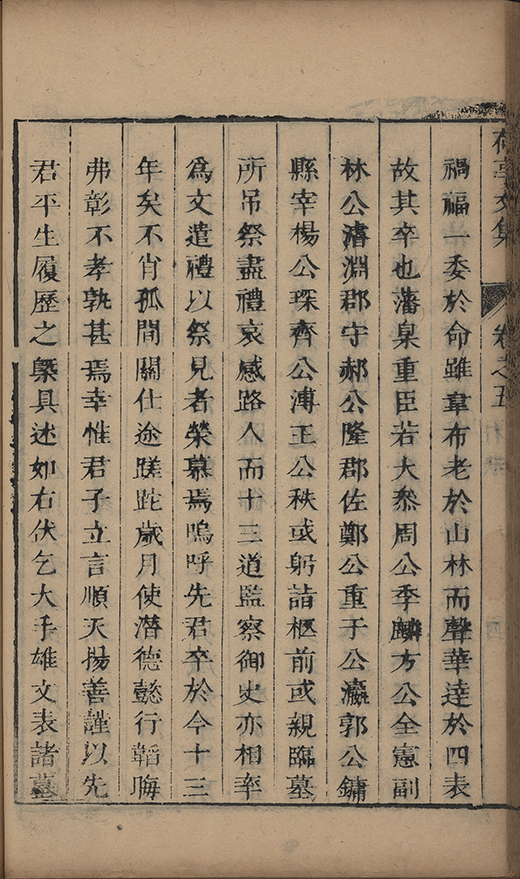 禍福一委於命雖韋布老於山林而聲華達於四表
故其卒也藩臬重臣若大叅周公季麟方公全憲副
林公濬淵郡守郝公隆郡佐鄭公重于公瀛郭公鏞
縣宰楊公琛齊公溥王公秩或躬詣柩前或親臨墓
所吊祭盡禮哀感路人而十三道監察御史亦相率
爲文遣禮以祭見者榮慕焉嗚呼先君卒於今十三
年矣不肖孤間關仕途蹉跎歲月使潛德懿行韜晦
弗彰不孝孰甚焉幸惟君子立言順天揚善謹以先
君平生履歷之槩具述如右伏乞大手雄文表諸墓
集
卷之五